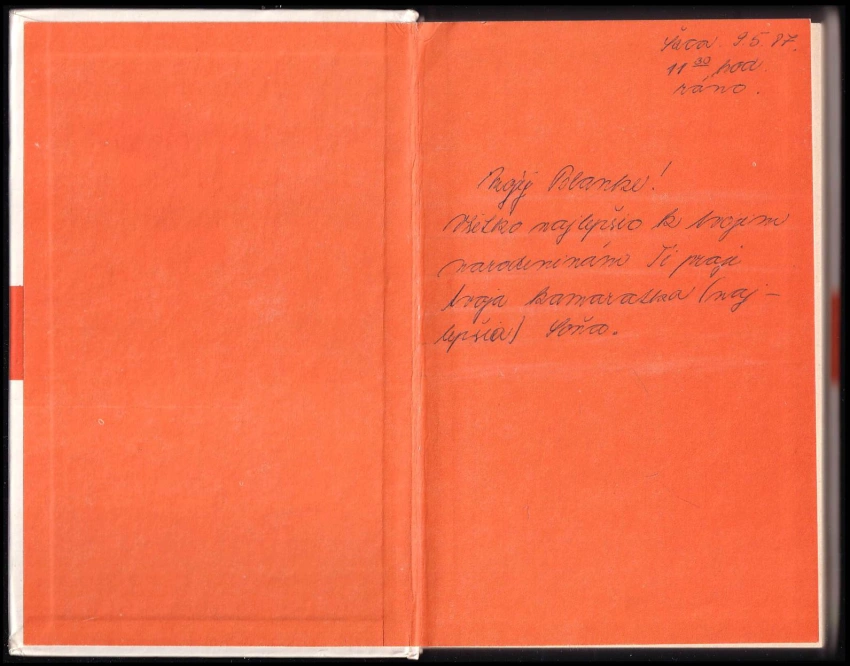 Šaca 9.5.87.
11 30 hod.
ráno.
Mojej Blanke!
Všetko najlepšio k tvojim
narodeninám Ti praje
tvoja kamaratka (naj-
lepšia) Soňa.